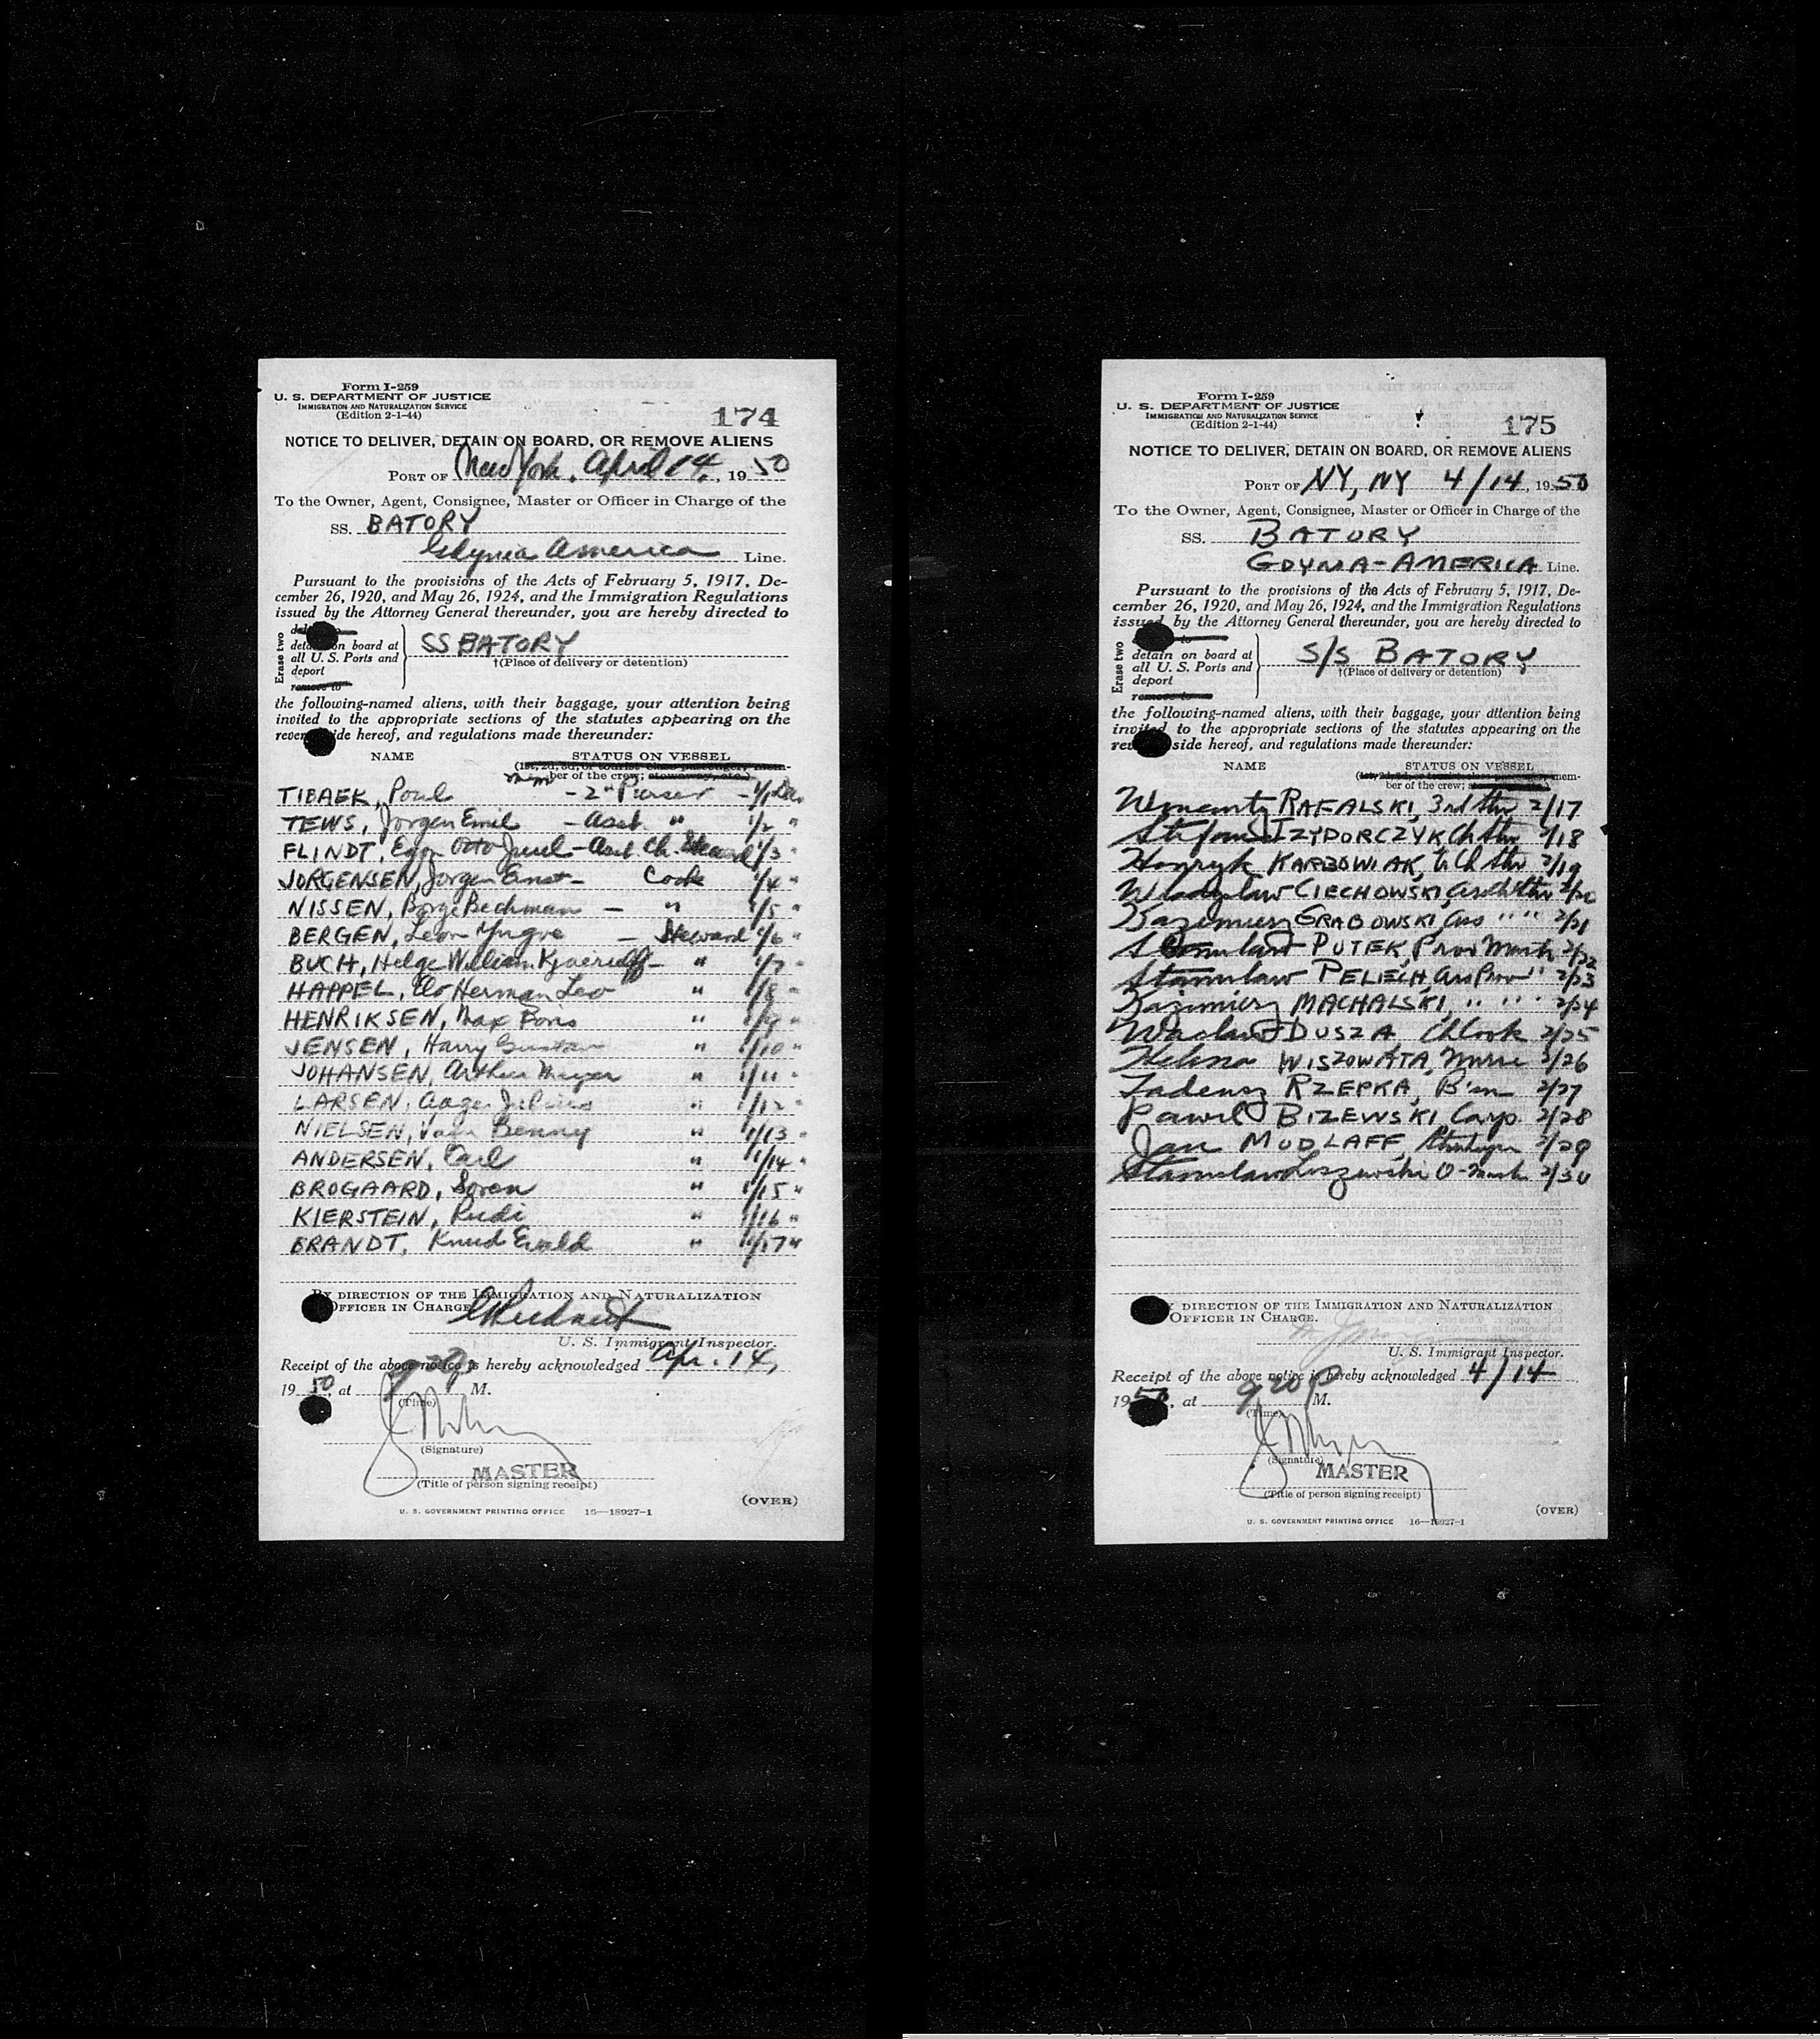 Form I-259
U. S. DEPARTMENT OF JUSTICE
IMMIGRATION AND NATURALIZATION SERVICE
(Edition 2-1-44)
174
NOTICE TO DELIVER, DETAIN ON BOARD, OR REMOVE ALIENS
PORT OF New York, April 14, 1950
To the Owner, Agent, Consignee, Master or Officer in Charge of the
SS. BATORY
Gdynia America Line.
Pursuant to the provisions of the Acts of February 5, 1917, De-
cember 26, 1920, and May 26, 1924, and the Immigration Regulations
issued by the Attorney General thereunder, you are hereby directed to
Erase two
detain on board at
all U. S. Ports and
deport
remove to
SS BATORY
†(Place of delivery or detention)
the following-named aliens, with their baggage, your attention being
invited to the appropriate sections of the statutes appearing on the
reverse side hereof, and regulations made thereunder:
NAME STATUS ON VESSEL
(1st, 2d, 3d, or tourist class passenger, mem-
ber of the crew; stowaway, etc.)
TIBAEK, Poul - 2" Purser - 1/1
TEWS, Jorgen Emil - Asst. " 1/2 "
FLINDT, Egon Otto Juul - Asst. Ch. Steward 1/3 "
JORGENSEN, Jorgen Ernst - Cook 1/4 "
NISSEN, Borge Bechman - " 1/5 "
BERGEN, Leon Yngve - Steward 1/6 "
BUCH, Helge William - " 1/7 "
HAPPEL, Herman Leo " 1/8 "
HENRIKSEN, Max " 1/9 "
JENSEN, Harry Gustav " 1/10 "
JOHANSEN, Arthur Meyer " 1/11 "
LARSEN, Aage " 1/12 "
NIELSEN, Benny " 1/13 "
ANDERSEN, Carl " 1/14 "
BROGAARD, Soren " 1/15 "
KIERSTEIN, Rudi " 1/16 "
BRANDT, Knud Evald " 1/17 "
BY DIRECTION OF THE IMMIGRATION AND NATURALIZATION
OFFICER IN CHARGE
U. S. Immigrant Inspector.
Receipt of the above notice is hereby acknowledged Apr. 14,
1950, at 920 P M.
(Time)
(Signature)
MASTER
(Title of person signing receipt)
(OVER)
U. S. GOVERNMENT PRINTING OFFICE 16—18927-1
Form I-259
U. S. DEPARTMENT OF JUSTICE
IMMIGRATION AND NATURALIZATION SERVICE
(Edition 2-1-44)
175
NOTICE TO DELIVER, DETAIN ON BOARD, OR REMOVE ALIENS
PORT OF NY, NY 4/14, 1950
To the Owner, Agent, Consignee, Master or Officer in Charge of the
SS. BATORY
GDYNIA-AMERICA Line.
Pursuant to the provisions of the Acts of February 5, 1917, De-
cember 26, 1920, and May 26, 1924, and the Immigration Regulations
issued by the Attorney General thereunder, you are hereby directed to
Erase two
detain on board at
all U. S. Ports and
deport
remove to
S/S BATORY
†(Place of delivery or detention)
the following-named aliens, with their baggage, your attention being
invited to the appropriate sections of the statutes appearing on the
reverse side hereof, and regulations made thereunder:
NAME STATUS ON VESSEL
(1st, 2d, 3d, or tourist class passenger, mem-
ber of the crew;
RAFALSKI, 3rd Stw 2/17
Stefan IZYDORCZYK Ch Stw 2/18
Henryk KARBOWIAK, Ch Stw 2/19
Wladyslaw CIECHOWSKI, 2/20
Kazimierz GRABOWSKI, Ass " " 2/21
Stanislaw PUTEK, Prov Mast 2/22
Stanislaw PELECH, Ass Prov " 2/23
Kazimierz MACHALSKI, " " " 2/24
Waclaw DUSZA, Ch Cook 2/25
Helena WISZOWATA, Nurse 2/26
Tadeusz RZEPKA, B'sn 2/27
Pawel BIZEWSKI Carp. 2/28
Jan MUDLAFF, 2/29
Stanislaw 2/30
BY DIRECTION OF THE IMMIGRATION AND NATURALIZATION
OFFICER IN CHARGE.
U. S. Immigrant Inspector.
Receipt of the above notice is hereby acknowledged 4/14
1950, at 920 P M.
(Time)
(Signature)
MASTER
(Title of person signing receipt)
(OVER)
U. S. GOVERNMENT PRINTING OFFICE 16—18927-1